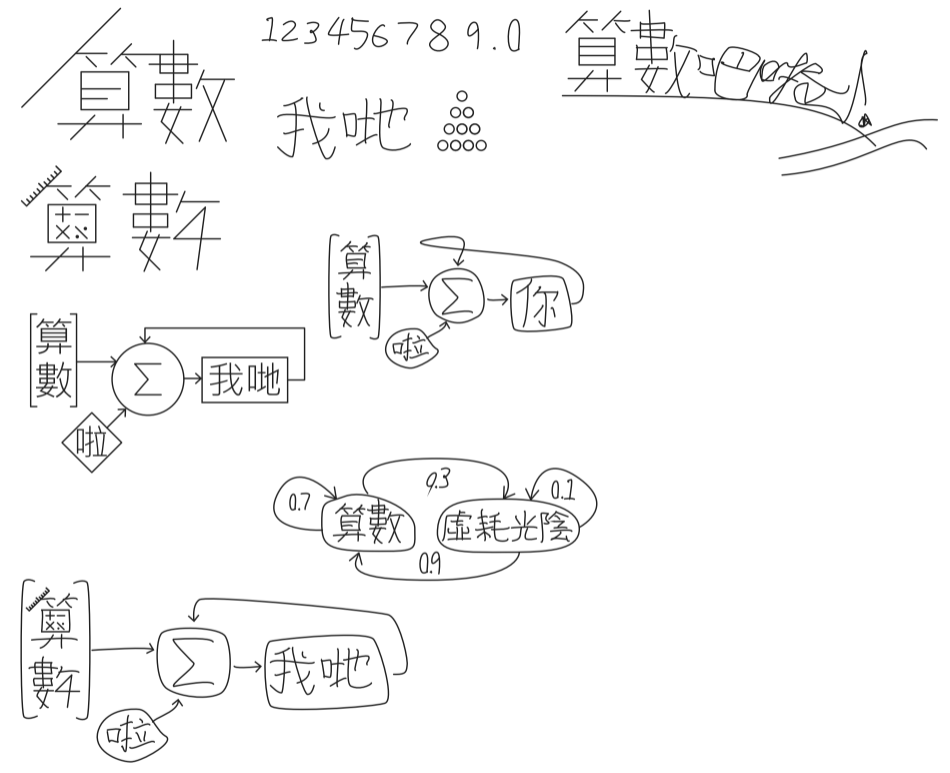 算數
123456789.0
算數吧啦
我哋
算數
算數
Σ
你
啦
算數
Σ
我哋
啦
0.3
0.7
0.1
算數
虛耗光陰
0.9
算數
Σ
我哋
啦